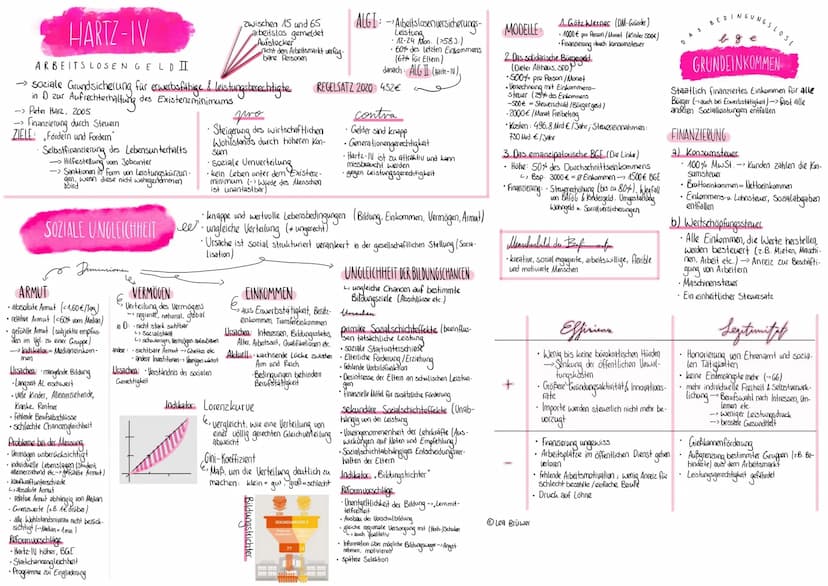 HARTZ-IV
ARBEITSLOSENGELD II
zwischen 15 und 65
arbeitslos gemeldet
Aufstocker
nicht den Arbeitsmarkt verfüg-
bare Personen
→ soziale Grundsicherung für erwerbsfähige & leistungsberechtigte
in D zur Aufrechterhaltung des Existenzminimums
→ Peter Harz, 2005
→ Finanzierung durch Steuern
ZIELE: „Fördern und Fordern"
Selbstfinanzierung des Lebensunterhalts
→ Hilfestellung vom Jobcenter
→ Sanktionen in Form von Leistungskürzun-
gen, wenn diese nicht wahrgenommen
wird
ALG I:
→ Arbeitslosenversicherungs-
Leistung
12-24 Mon. (>58J.)
60% des letzten Einkommens
(67% für Eltern)
danach ALG II (Hartz-IV)
REGELSATZ 2020 : 432€
pro
- Steigerung des wirtschaftlichen
Wohlstands durch höheren Kon-
sum
- soziale Umverteilung
- kein Leben unter dem Existenz-
minimum (→ Würde des Menschen
ist unantastbar)
contra
- Gelder sind knapp
- Generationengerechtigkeit
- Hartz-IV ist zu attraktiv und kann
missbraucht werden
- gegen Leistungsgerechtigkeit
SOZIALE UNGLEICHHEIT
• knappe und wertvolle Lebensbedingungen (Bildung, Einkommen, Vermögen, Armut)
• ungleiche Verteilung (≠ ungerecht)
• Ursache ist sozial strukturiert verankert in der gesellschaftlichen Stellung (Sozia-
lisation)
Dimensionen
ARMUT
• absolute Armut (<1,60€/Tag)
• relative Armut (<60% vom Median)
• gefühlte Armut (subjektiv empfun-
den im Vgl. zu einer Gruppe)
→ Indikator = Medianeinkom-
men
Ursachen • mangelnde Bildung
• Langzeit AL erschwert
• viele Kinder, Alleinerziehende,
Kranke, Rentner
• fehlende Berufsabschlüsse
• schlechte Chancengleichheit
Probleme bei der Messung
• Vermögen unberücksichtigt
• individuelle Lebenslagen (Student,
alleinerziehend etc. → gefühlte Armut)
• Kaufkraftunterschiede
↳ absolute Armut
• relative Armut abhängig von Median
• Grenzwerte (z.B. 1€ drüber)
• alle Wohlstandsnormen nicht berück-
sichtigt
Reformvorschläge
• Hartz-IV höher, BGE
• Startchancengleichheit
• Programme zur Eingliederung
VERMÖGEN
Verteilung des Vermögens
→ regional, national, global
in D: • nicht stark sichtbar
↳ Sozialstaat
Ursachen • Verständnis des sozialen
Gerechtigkeit
EINKOMMEN
aus Erwerbstätigkeit, Besitz-
einkommen, Transfereinkommen
Ursachen Interessen, Bildungsstatus,
Alter, Arbeitszeit, Qualifikationen etc.
Aktuell • wachsende Lücke zwischen
Arm und Reich
Bedingungen behindern
Berufstätigkeit
Indikator Lorenzkurve
↳ vergleicht, wie eine Verteilung von
einer völlig gerechten Gleichverteilung
abweicht
Gini-Koeffizient
↳ Maß, um die Verteilung deutlich zu
machen: klein = gut, groß = schlecht
Bildungstrichter
UNGLEICHHEIT DER BILDUNGSCHANCEN
↳ ungleiche Chancen auf bestimmte
Bildungsziele (Abschlüsse etc.)
Ursachen
primäre Sozialschichteffekte (beeinflus-
sen tatsächliche Leistung)
• soziale Startunterschiede
• Elterliche Förderung/Erziehung
• fehlende Vorbildfunktion
• Desinteresse der Eltern an schulischen Leistun-
gen
• finanzielle Mittel für zusätzliche Förderung
sekundäre Sozialschichteffekte (Unab-
hängig von der Leistung)
• Voreingenommenheit der Lehrkräfte (Aus-
wirkungen auf Noten und Empfehlung)
• Sozialschichtabhängiges Entscheidungsver-
halten der Eltern
Indikator „Bildungstrichter"
Reformvorschläge
• Unentgeltlichkeit der Bildung → Lernmit-
telfreiheit
• Ausbau der Vorschulbildung
• gleiche regionale Versorgung mit (Hoch-)Schulen
↳ auch qualitativ
• Information über mögliche Bildungswege → Angst
nehmen, motivieren
• spätere Selektion
MODELLE
1. Götz Werner (DM-Gründer)
• 1000€ pro Person/Monat (Kinder 500€)
• Finanzierung durch Konsumsteuer
2. Das solidarische Bürgergeld
(Dieter Althaus, CDU)
• 500€ pro Person/Monat
• Verrechnung mit Einkommens-
steuer (25% des Einkommens
-500€ = Steuerschuld/Bürgergeld)
• 2000€/Monat Freibetrag
• Kosten: 496,8 Mrd €/Jahr; Steuereinnahmen:
730 Mrd €/Jahr
3. Das emanzipatorische BGE (Die Linke)
• Höhe: 50% des Durchschnittseinkommens
↳ Bsp. 3000€ = Ø Einkommen → 1500€ BGE
• Finanzierung: • Steuererhöhung (bis zu 80%), Wegfall
von BAföG & Kindergeld, Umgestaltung
Wohngeld & Sozialversicherungen
Menschenbild der Befürworter
• kreative, sozial engagierte, arbeitswillige, flexible
und motivierte Menschen
DAS BEDINGUNGSLOSE
bge
GRUNDEINKOMMEN
Staatlich finanziertes Einkommen für alle
Bürger (→ auch bei Erwerbstätigkeit) → fast alle
anderen Sozialleistungen entfallen
FINANZIERUNG
a) Konsumsteuer
• 100% MwSt. → Kunden zahlen die Kon-
sumsteuer
• Bruttoeinkommen = Nettoeinkommen
• Einkommens- & Lohnsteuer, Sozialabgaben
entfallen
b) Wertschöpfungssteuer
• Alle Einkommen, die Werte herstellen,
werden besteuert (z.B. Mieten, Maschi-
nen, Arbeit etc.) → Anreiz zur Beschäfti-
gung von Arbeitern
• Maschinensteuer
• Ein einheitlicher Steuersatz
Effizienz
Legitimität
+
• Wenig bis keine bürokratischen Hürden
→ Senkung der öffentlichen Verwal-
tungskosten
• Größere Gründungsaktivität & Innovations-
rate
• Importe werden steuerlich nicht mehr be-
vorzugt
• Honorierung von Ehrenamt und sozia-
len Tätigkeiten
• keine Existenzängste mehr (→GG)
• mehr individuelle Freiheit & Selbstverwirk-
lichung → Berufswahl nach Interessen, Un-
lernen etc.
→ weniger Leistungsdruck
→ bessere Gesundheit
-
• Finanzierung ungewiss
• Arbeitsplätze im öffentlichen Dienst gehen
verloren
• Fehlende Arbeitsmotivation; wenig Anreiz für
schlecht bezahlte/einfache Berufe
• Druck auf Löhne
• Gießkannenförderung
• Ausgrenzung bestimmter Gruppen (z.B. Be-
hinderte) aus dem Arbeitsmarkt
• Leistungsgerechtigkeit gefährdet
© Lea Brüwer